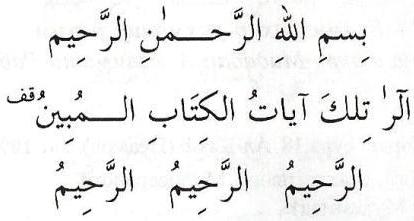 بسم الله الرَّحـــمٰن الرَّحيم
آلرٰ تِلكَ آيَاتُ الكِتَاب الـــمُبينُ قفـ
الرَّحيمُ الرَّحِيمُ الرَّحِيمُ